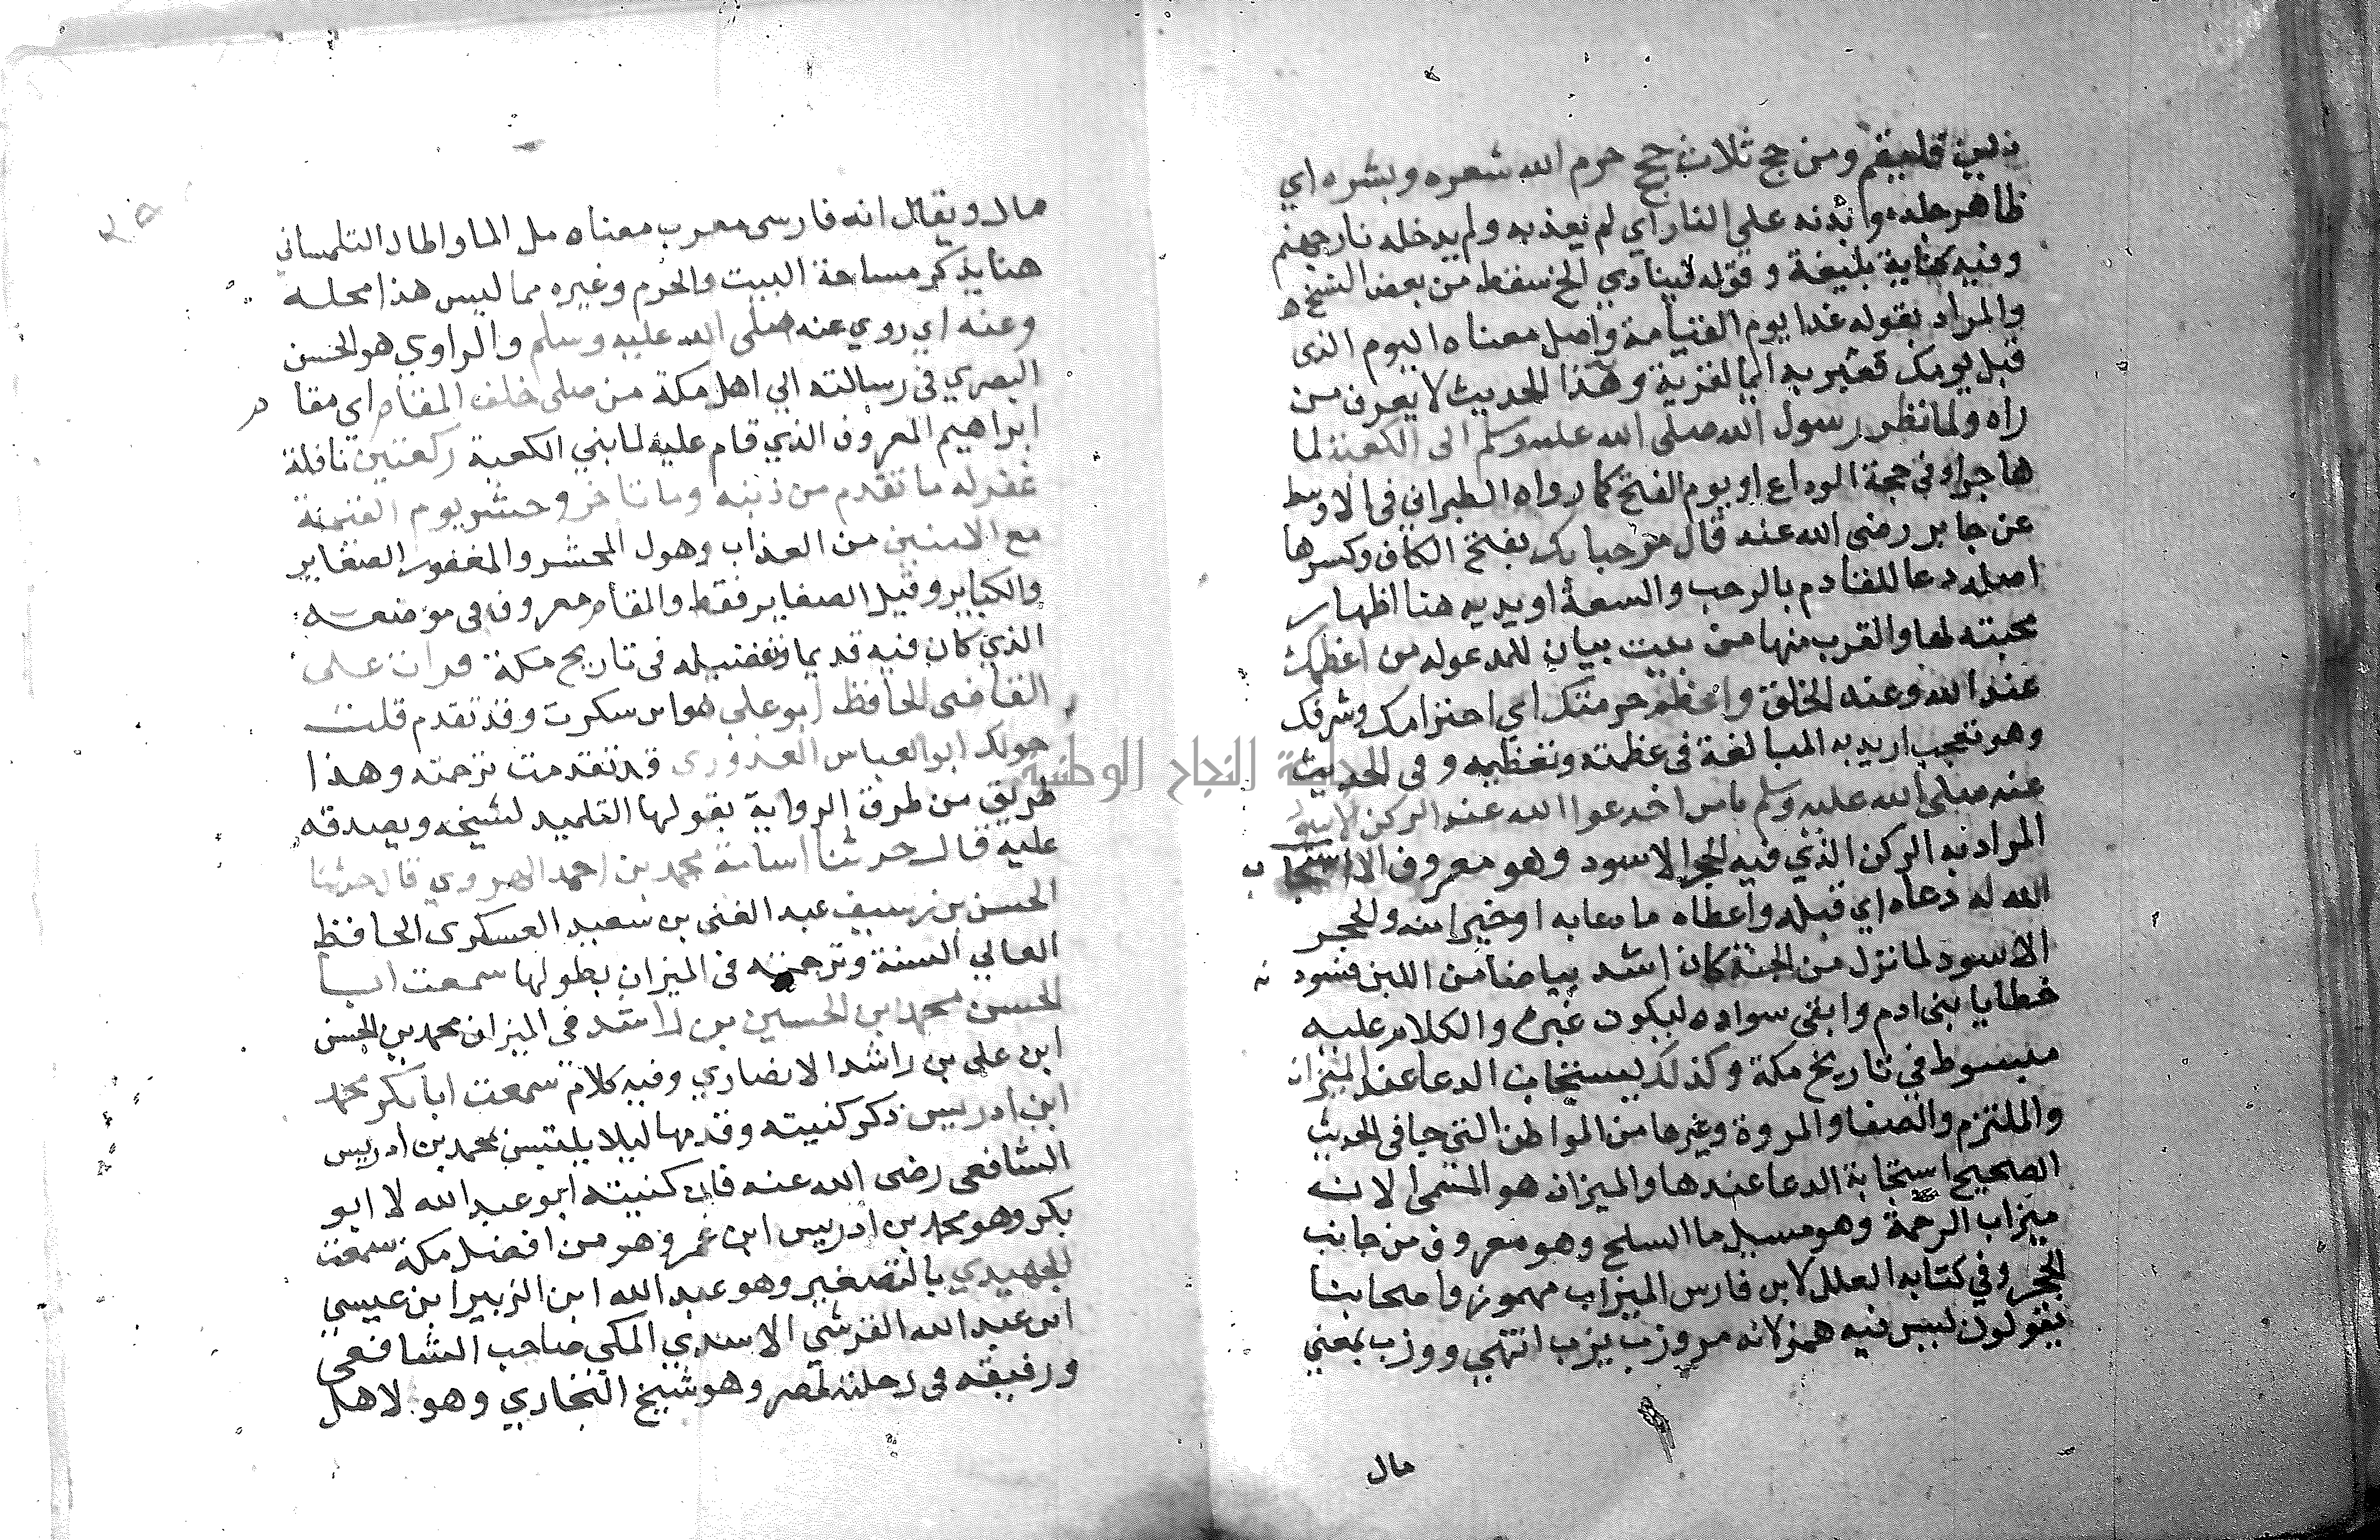 فليقم ومن حج ثلاث حجج حرم الله شعره وبشره اي
ظاهر جلده وابدنه علي النار اي لم يعذبه ولم يدخله نار جهنم
وفيه كناية بليغة و قوله فينادي الخ سقط من بعض النسخ
والمراد بقوله غدا يوم القيامة واصل معناه اليوم الذي
قبل يومك وهذا الحديث لا يعرف من
راه ولما نظر رسول الله صلى الله عليه وسلم الى الكعبة لما
هاجر او في حجة الوداع او يوم الفتح كما رواه الطبراني في الاوسط
عن جابر رضي الله عنه قال مرحبا بك بفتح الكاف وكسرها
اصله دعا للقادم بالرحب والسعة اريد به هنا اظهار
محبته لها والقرب منها من بيت بيان للمدعوله من اعظمك
عند الله وعند الخلق واعظم حرمتك اي احترامك وشرفك
وهو تعجب اريد به المبالغة في عظمته وتعظيمه و في الحديث
عنه صلى الله عليه وسلم ما من احد دعوا الله عند الركن الاسود
المراد به الركن الذي فيه الحجر الاسود وهو معروف الا استجاب
الله له دعاه اي قبله واعطاه ما دعا به او خيرا منه والحجر
الاسود لما نزل من الجنة كان اشد بياضا من اللبن فسودته
خطايا بني ادم وابقي سواده ليكون عبرة والكلام عليه
مبسوط في تاريخ مكة وكذلك يستجاب الدعا عند الميزاب
والملتزم والصفا والمروة وغيرها من المواطن التي جا في الحديث
الصحيح استجابة الدعا عندها والميزاب هو المسمى الان
ميزاب الرحمة وهو مسيل ما السطح وهو معروف من جانب
الحجر وفي كتابه العلل لابن فارس الميزاب مهموز واصحابنا
يقولون ليس فيه همز لانه من وزب يزب انتهي ووزب بمعني
مال
مال ويقال انه فارسي معرب معناه مل الما واطال التلمساني
هنا بذكر مساحة البيت والحرم وغيره مما ليس هذا محله
وعنه اي روي عنه صلى الله عليه وسلم والراوي هو الحسن
البصري في رسالته الي اهل مكة من صلى خلف المقام اي مقام
ابراهيم المعروف الذي قام عليه لما بني الكعبة ركعتين نافلة
غفر له ما تقدم من ذنبه وما تاخر وحشر يوم القيمة
مع الامنين من العذاب وهول المحشر والمغفور الصغاير
والكباير وقيل الصغاير فقط والمقام معروف في موضعه
الذي كان فيه قديما وتفصيله في تاريخ مكة قرات على
القاضي الحافظ ابو علي هو ابن سكرت وقد تقدم قلت
حدثك ابو العباس العذوري قد تقدمت ترجمته وهذا
طريق من طرق الرواية يقولها التلميد لشيخه ويصدقه
عليه قال حدثنا اسامة محمد بن احمد الهروي قال حدثنا
الحسن بن رسيف عبد الغني بن سعيد العسكرى الحافظ
العالي السنة وترجمته في الميزان بطولها سمعت ابا
الحسن محمد ابن الحسين بن راشد في الميزان محمد بن الحسن
ابن علي بن راشد الانصاري وفيه كلام سمعت ابا بكر محمد
ابن ادريس ذكر كنيته وقدمها ليلا يلتبس بمحمد بن ادريس
الشافعي رضى الله عنه فان كنيته ابو عبد الله لا ابو
بكر وهو محمد بن ادريس ابن عمر وهو من افضل مكة سمعت
الحميدي بالتصغير وهو عبد الله ابن الزبير ابن عيسي
ابن عبد الله القرشي الاسدي المكي صاحب الشافعي
ورفيقه في رحلته لمصر وهو شيخ البخاري وهو لاهل
جامعة النجاح الوطنية